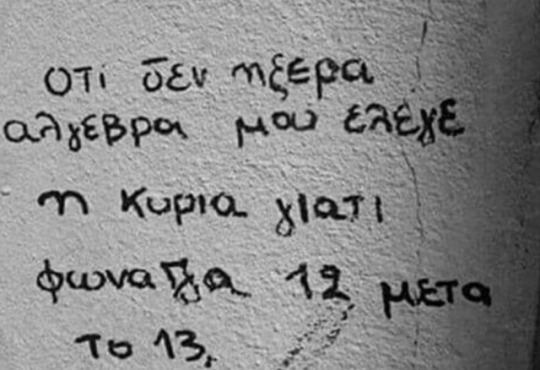 οτι δεν ηξερα
αλγεβρα μου ελεγε
η κυρια γιατι
φωναζα 12 μετα
το 13.